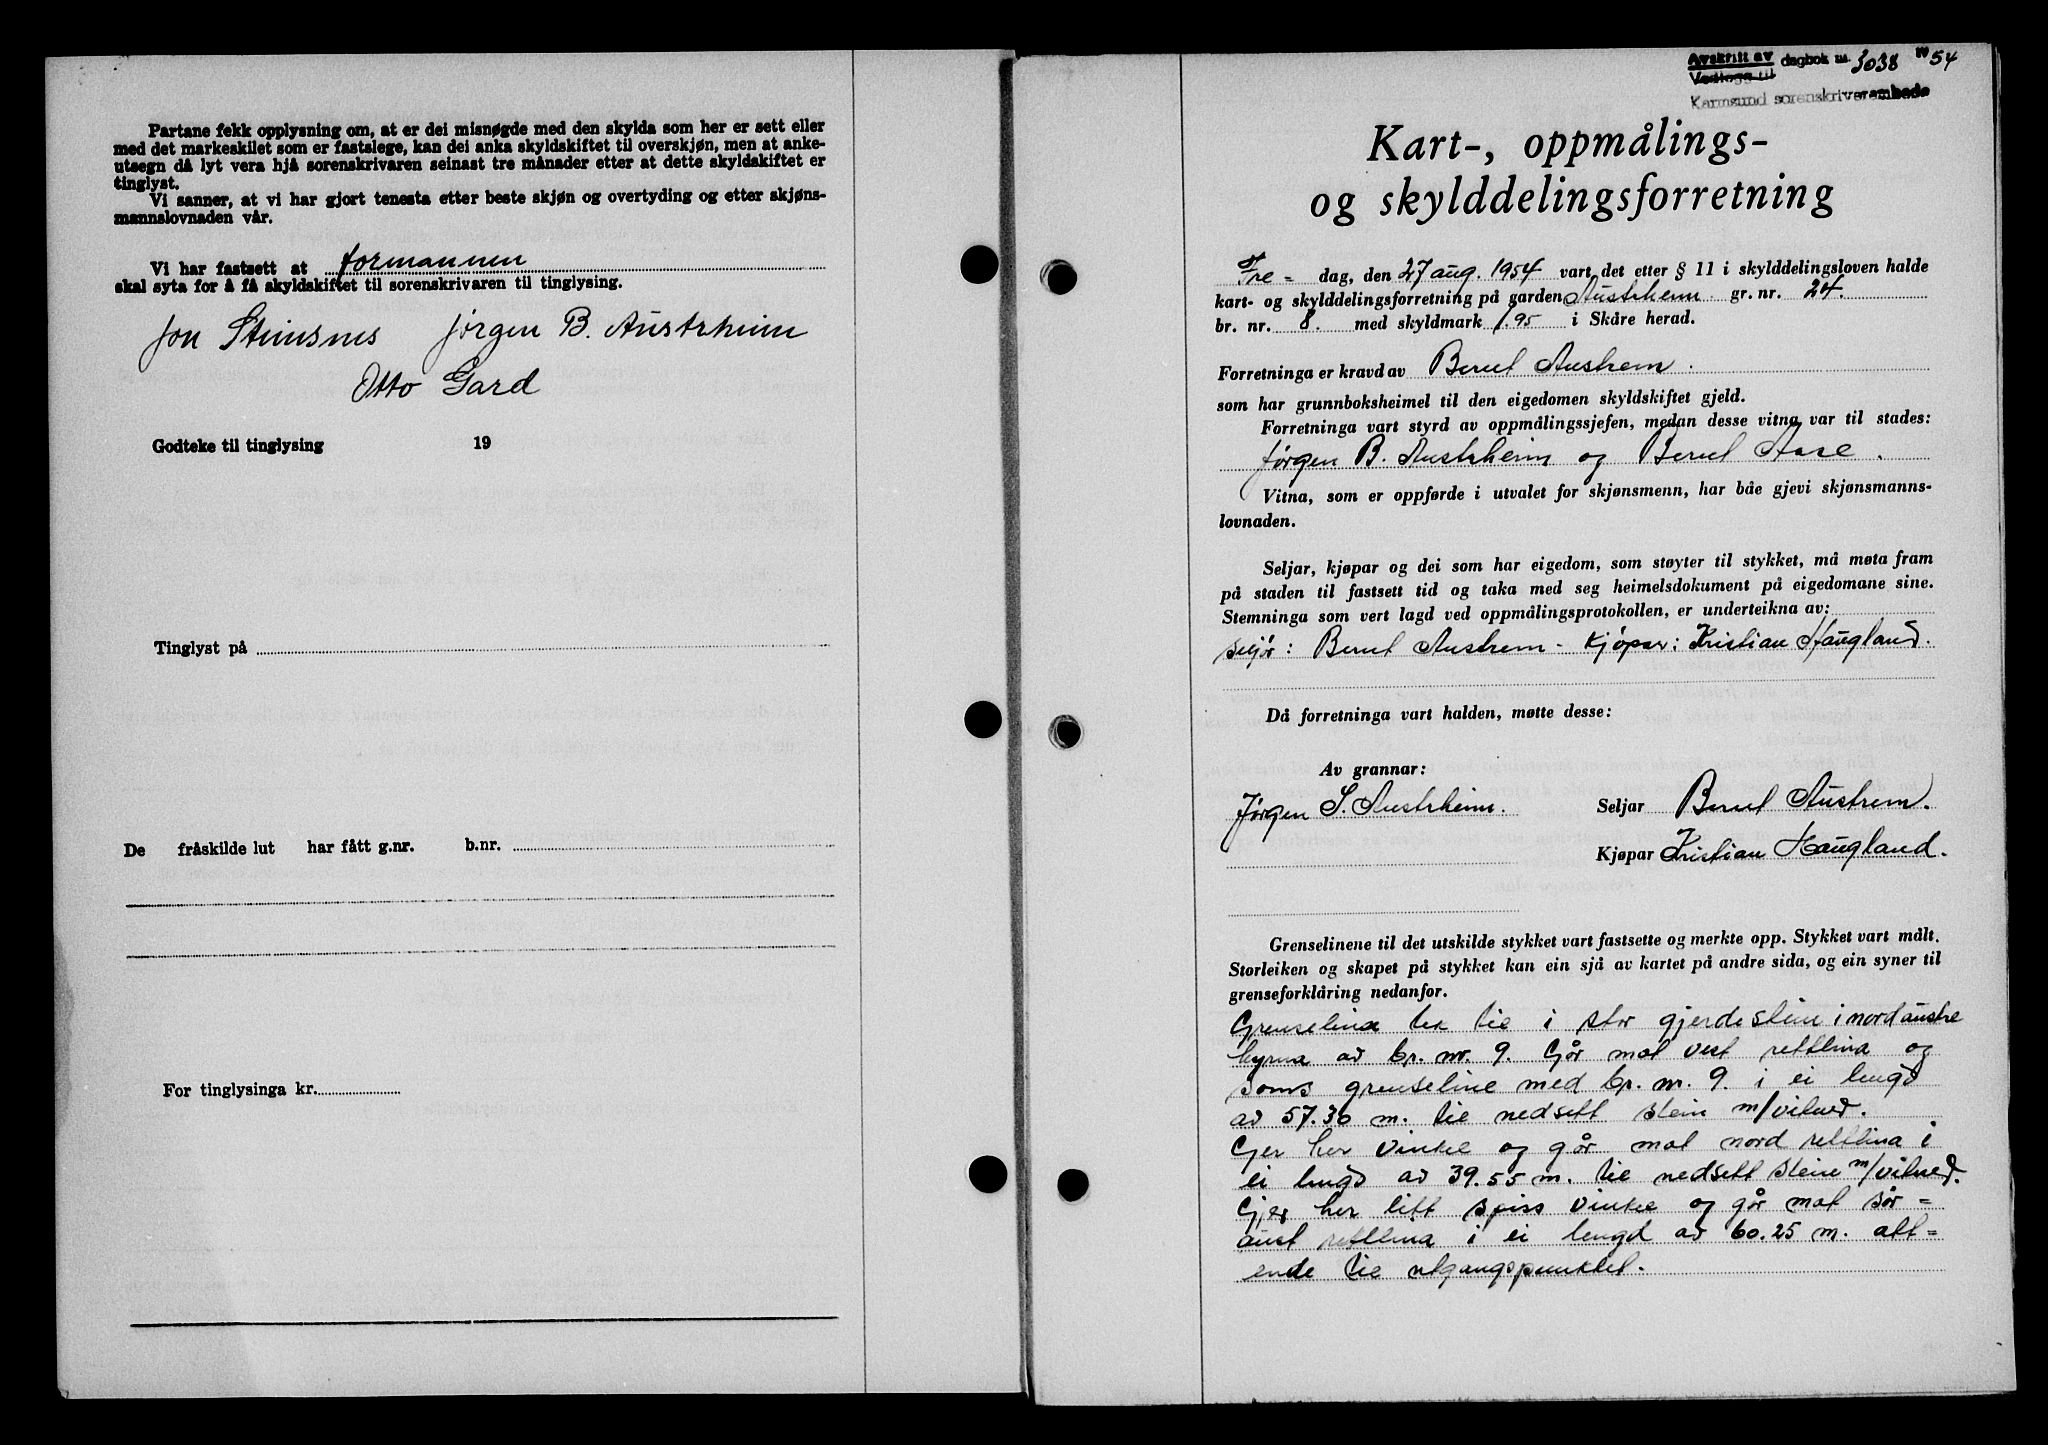 Partane fekk opplysning om, at er dei misnøgde med den skylda som her er sett eller
med det markeskilet som er fastslege, kan dei anka skyldskiftet til overskjøn, men at anke-
utsegn då lyt vera hjå sorenskrivaren seinast tre månader etter at dette skyldskiftet er
tinglyst.
Vi sanner, at vi har gjort tenesta etter beste skjøn og overtyding og etter skjøns-
mannslovnaden vår.
Vi har fastsett at formannen
skal syta for å få skyldskiftet til sorenskrivaren til tinglysing.
Jon Steinsnes Jørgen B. Austrheim
Otto Gard
Godteke til tinglysing 19
Tinglyst på
De fråskilde lut har fått g.nr. b.nr.
For tinglysinga kr.
Avskrift av dagbok nr. 3038 19 54
Vedlegg til
Karmsund sorenskriverembede
Kart-, oppmålings-
og skylddelingsforretning
Fre- dag, den 27 aug. 1954 vart det etter § 11 i skylddelingsloven halde
kart- og skylddelingsforretning på garden Austrheim gr. nr. 24.
br. nr. 8. med skyldmark 1.95 i Skåre herad.
Forretninga er kravd av Berul Austrem.
som har grunnboksheimel til den eigedomen skyldskiftet gjeld.
Forretninga vart styrd av oppmålingssjefen, medan desse vitna var til stades:
Jørgen B. Austrheim og Berul Aase.
Vitna, som er oppførde i utvalet for skjønsmenn, har båe gjevi skjønsmanns-
lovnaden.
Seljar, kjøpar og dei som har eigedom, som støyter til stykket, må møta fram
på staden til fastsett tid og taka med seg heimelsdokument på eigedomane sine.
Stemninga som vert lagd ved oppmålingsprotokollen, er underteikna av:
seljar: Berul Austrem - Kjøpar: Kristian Haugland.
Då forretninga vart halden, møtte desse:
Av grannar:
Jørgen S. Austrheim. Seljar Berul Austrem.
Kjøpar Kristian Haugland.
Grenselinene til det utskilde stykket vart fastsette og merkte opp. Stykket vart målt.
Storleiken og skapet på stykket kan ein sjå av kartet på andre sida, og ein syner til
grenseforklåring nedanfor.
Grenselina tek til i stor gjerdestein i nordaustre
hyrna av br. nr. 9. Går mot vest rettlina og
soms grenseline med br. nr. 9. i ei lengd
av 57.30 m. til nedsett stein m/vitner.
Gjer her vinkel og går mot nord rettlina i
ei lengd av 39.55 m. til nedsett stein m/vitner.
Gjer her litt spiss vinkel og går mot sør-
aust rettlina i ei lengd av 60.25 m. att-
ende til utgangspunktet.